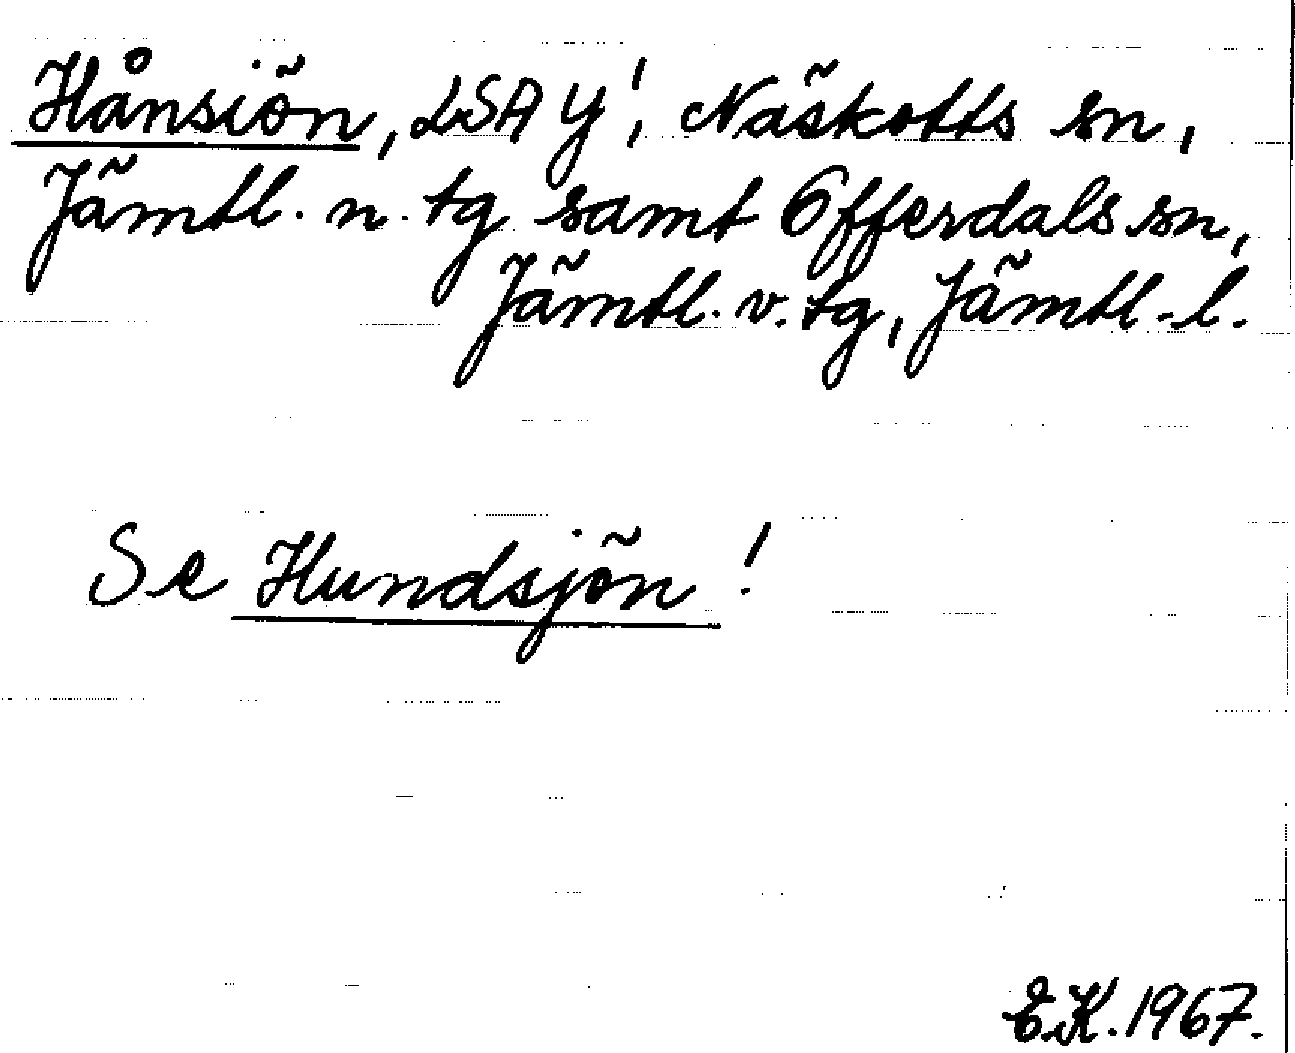 Hånsiön, LSA Y¹, Näskotts sn,
Jämtl. n. tg samt Offerdals sn,
Jämtl. v. tg, Jämtl. l.
Se Hundsjön!
E.K. 1967.